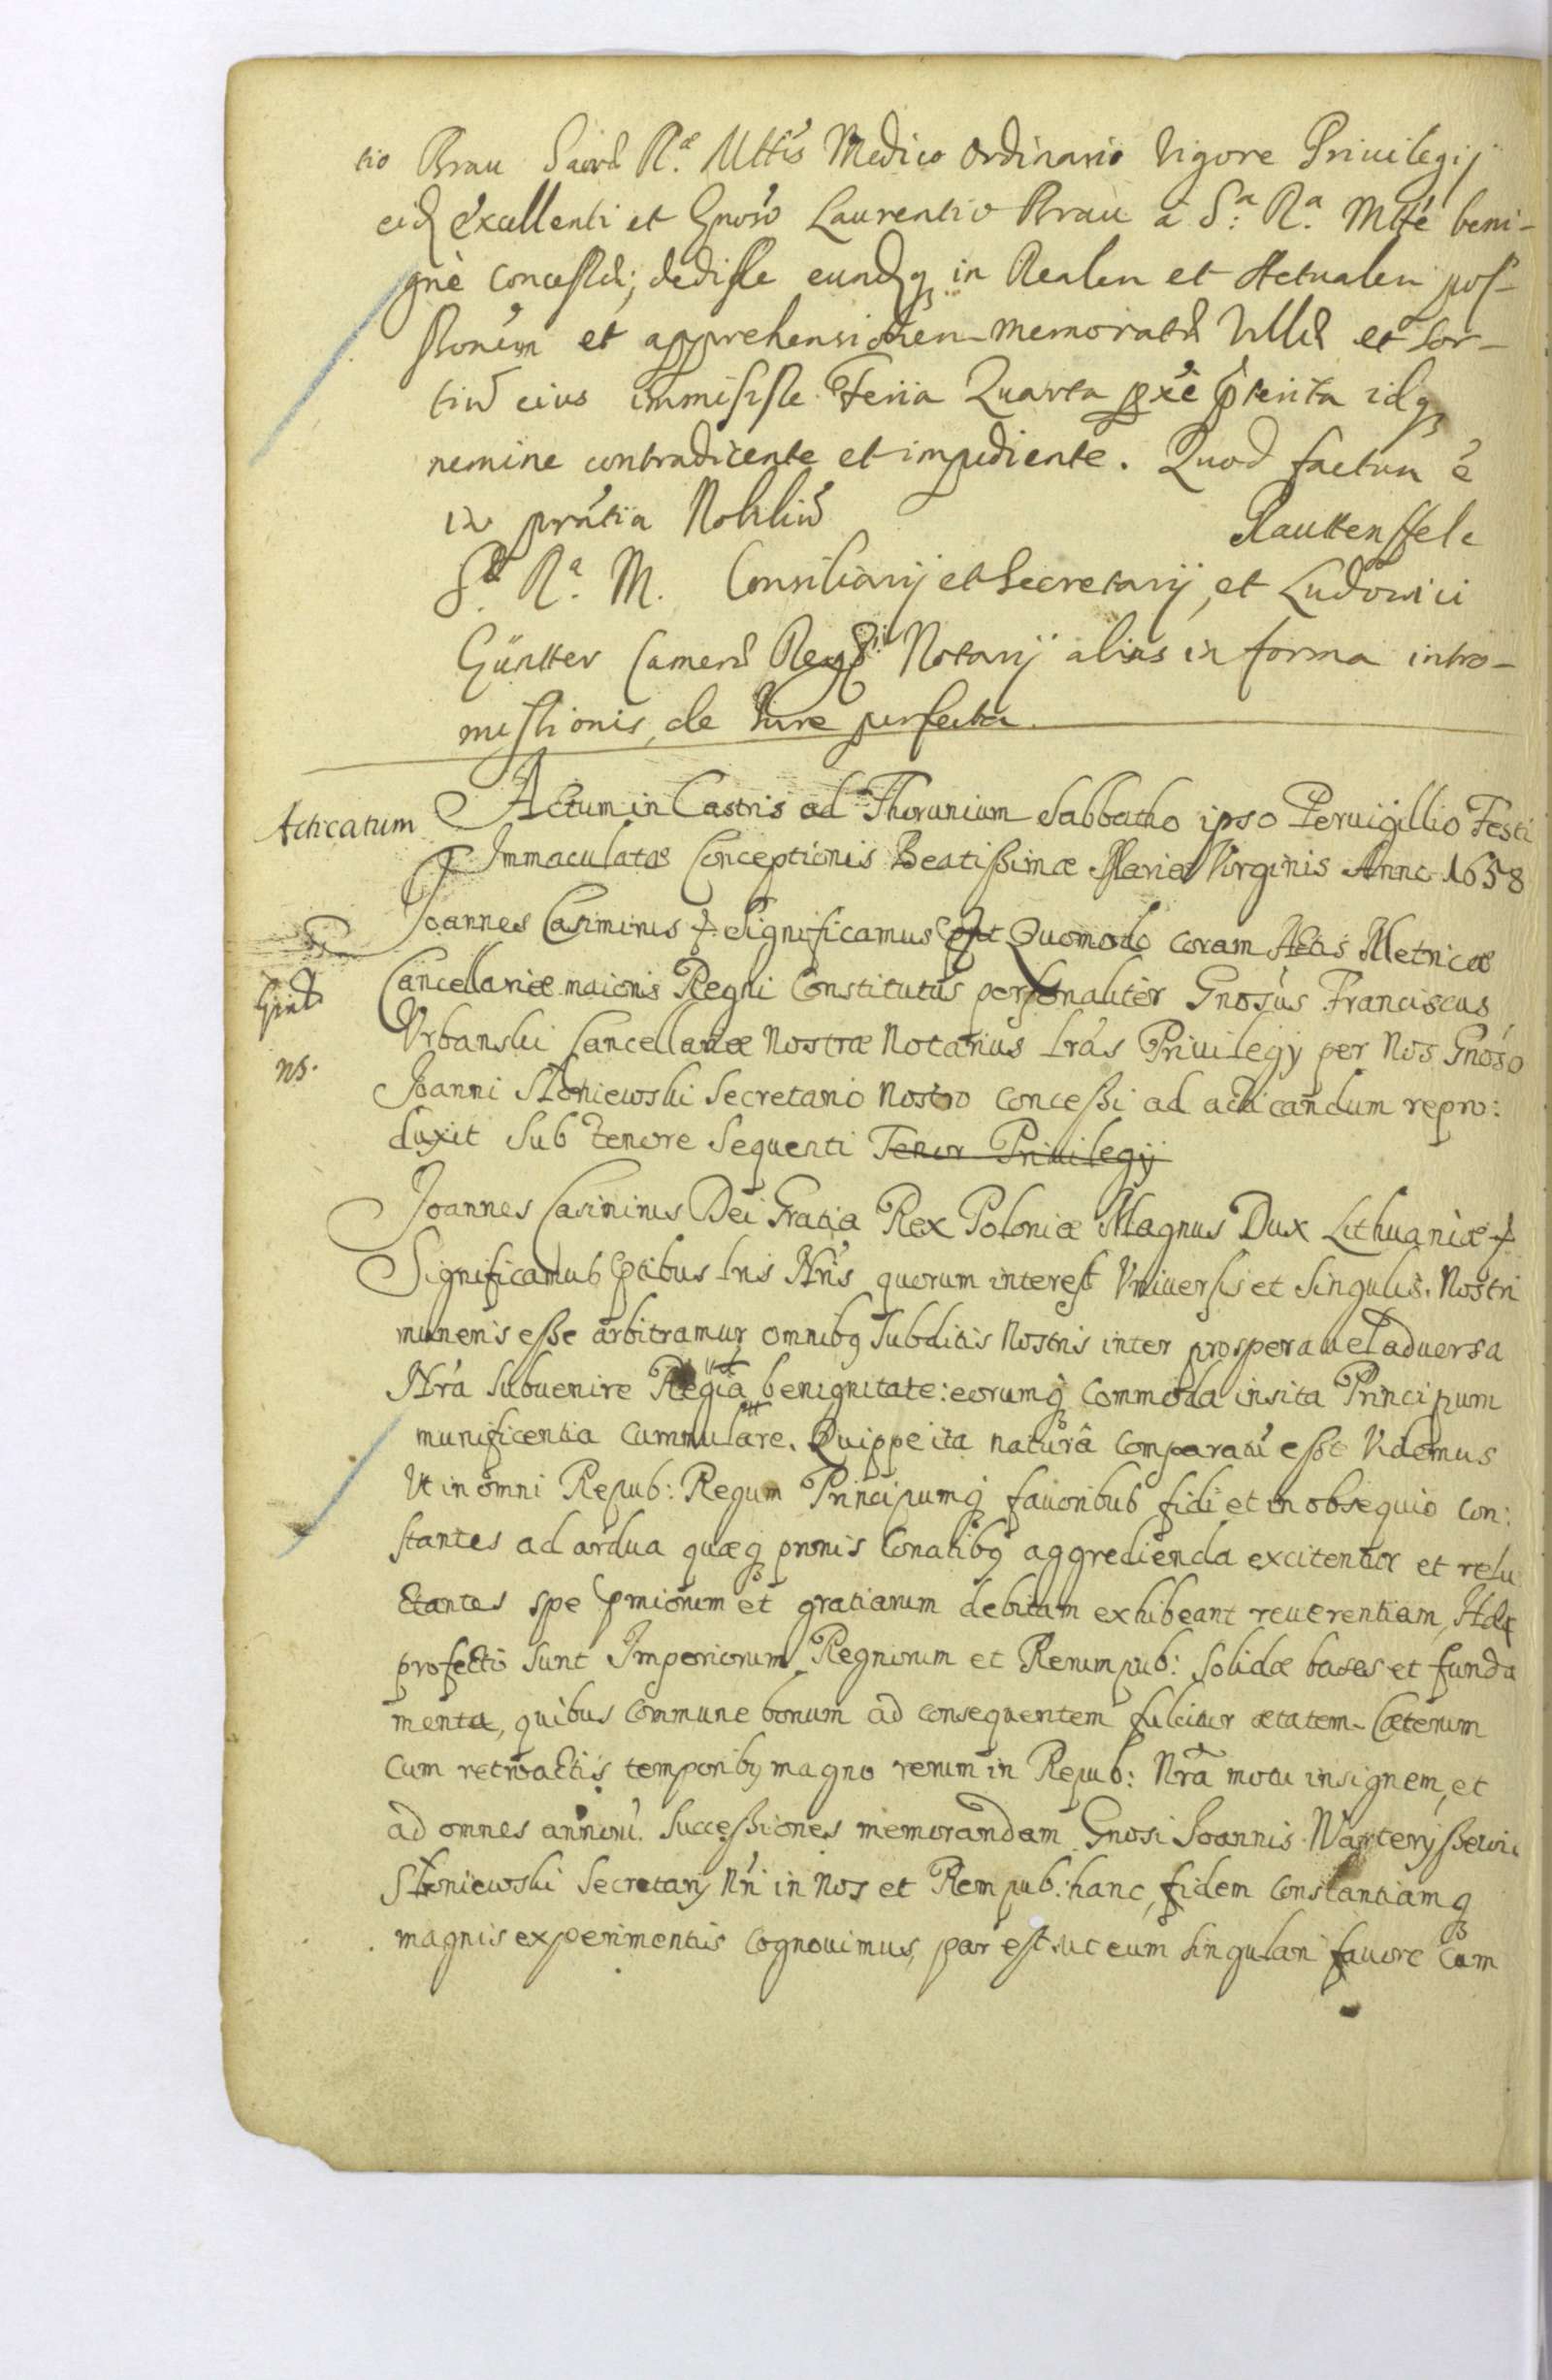 tio Brau Sacræ R.æ Mttis Medico Ordinario Vigore Priuilegij
eid excellenti et Gnoso Laurentio Brau à S.a R.a Mtte beni-
gnè concessi; dedisse eundq in Realem et Actualem pos-
sionem et apprehensionem memoratæ Villæ et sor-
tiu eius immisisse Feria Quarta pxe pterita idq
nemine contradicente et impediente. Quod factum é
in pntia Nobiliu Rauttenffels
S.æ R.æ M. Consiliarij et Secretarij, et Ludowici
Günter Cameræ Regiæ Notarij alias in forma intro-
missionis, de Iure perfecta.
Acticatum
Actum in Castris ad Thorunium Sabbatho ipso Peruigillio Festi
Immaculatæ Conceptionis Beatißimæ Mariæ Virginis Anno 1658
Joannes Casimirus & Significamus & Quomodo coram Actis Metricæ
Cancellariæ maioris Regni Constitutus personaliter Gnosus Franciscus
Vrbanski Cancellariæ Nostræ Notarius lras Priuilegij per Nos Gnoso
ns.
Joanni Słoniewski Secretario Nostro conceßi ad acticandum repro:
duxit sub tenore sequenti Tenor Priuilegij
Joannes Casimirus Dei Gratia Rex Poloniæ Magnus Dux Lithuaniæ &
Significamus ptibus lris Nris quorum interest Vniuersis et Singulis. Nostri
muneris eße arbitramur omnibq Subditis Nostris inter prospera uel aduersa
Nrá subuenire Regia benignitate: eorumq commoda insita Principum
munificentia cummulare. Quippe ita naturâ comparatu eße Videmus
Vt in omni Repub: Regum Principumq fauoribus fidi et in obsequio con:
stantes ad ardua quæq pronis Conatibq aggredienda excitentur et relu
ctantes spe pmiorum et gratiarum debitam exhibeant reuerentiam, Hæ
profecto sunt Imperiorum Regnorum et Rerumpub: solidæ bases et funda
menta, quibus commune bonum ad consequentem fulcitur ætatem. Cæterum
Cum retroactis temporibq magno rerum in Repub: Nrâ motu insignem, et
ad omnes annoru succeßiones memorandam Gnosi Joannis
Słoniewski Secretarij Nri in Nos et Rempub: hanc, fidem constantiamq
magnis experimentis cognouimus, par est ut eum singulari fauore Cum